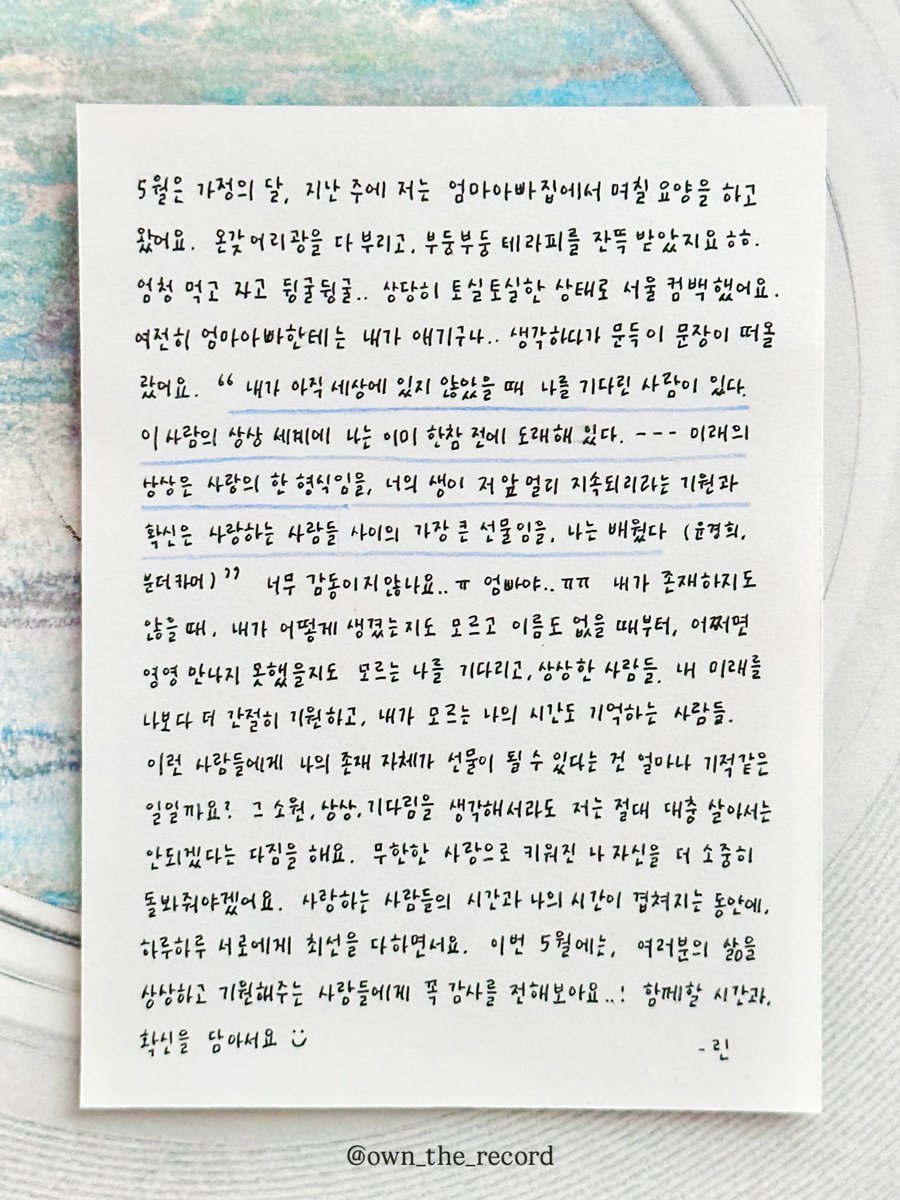 5월은 가정의 달, 지난 주에 저는 엄마아빠집에서 며칠 요양을 하고
왔어요. 온갖 어리광을 다 부리고, 부둥부둥 테라피를 잔뜩 받았지요ㅎㅎ.
엄청 먹고 자고 뒹굴뒹굴.. 상당히 토실토실한 상태로 서울 컴백했어요.
여전히 엄마아빠한테는 내가 애기구나.. 생각하다가 문득 이 문장이 떠올
랐어요. “ 내가 아직 세상에 있지 않았을 때 나를 기다린 사람이 있다.
이 사람의 상상 세계에 나는 이미 한참 전에 도래해 있다. --- 미래의
상상은 사랑의 한 형식임을, 너의 생이 저 앞 멀리 지속되리라는 기원과
확신은 사랑하는 사람들 사이의 가장 큰 선물임을, 나는 배웠다 (윤경희,
분더카머) ” 너무 감동이지않나요..ㅠ 엄빠야..ㅠㅠ 내가 존재하지도
않을 때, 내가 어떻게 생겼는지도 모르고 이름도 없을 때부터, 어쩌면
영영 만나지 못했을지도 모르는 나를 기다리고, 상상한 사람들. 내 미래를
나보다 더 간절히 기원하고, 내가 모르는 나의 시간도 기억하는 사람들.
이런 사람들에게 나의 존재 자체가 선물이 될 수 있다는 건 얼마나 기적같은
일일까요? 그 소원, 상상, 기다림을 생각해서라도 저는 절대 대충 살아서는
안되겠다는 다짐을 해요. 무한한 사랑으로 키워진 나 자신을 더 소중히
돌봐줘야겠어요. 사랑하는 사람들의 시간과 나의 시간이 겹쳐지는 동안에,
하루하루 서로에게 최선을 다하면서요. 이번 5월에는, 여러분의 삶을
상상하고 기원해주는 사람들에게 꼭 감사를 전해보아요..! 함께할 시간과,
확신을 담아서요 :)
- 린
@own_the_record